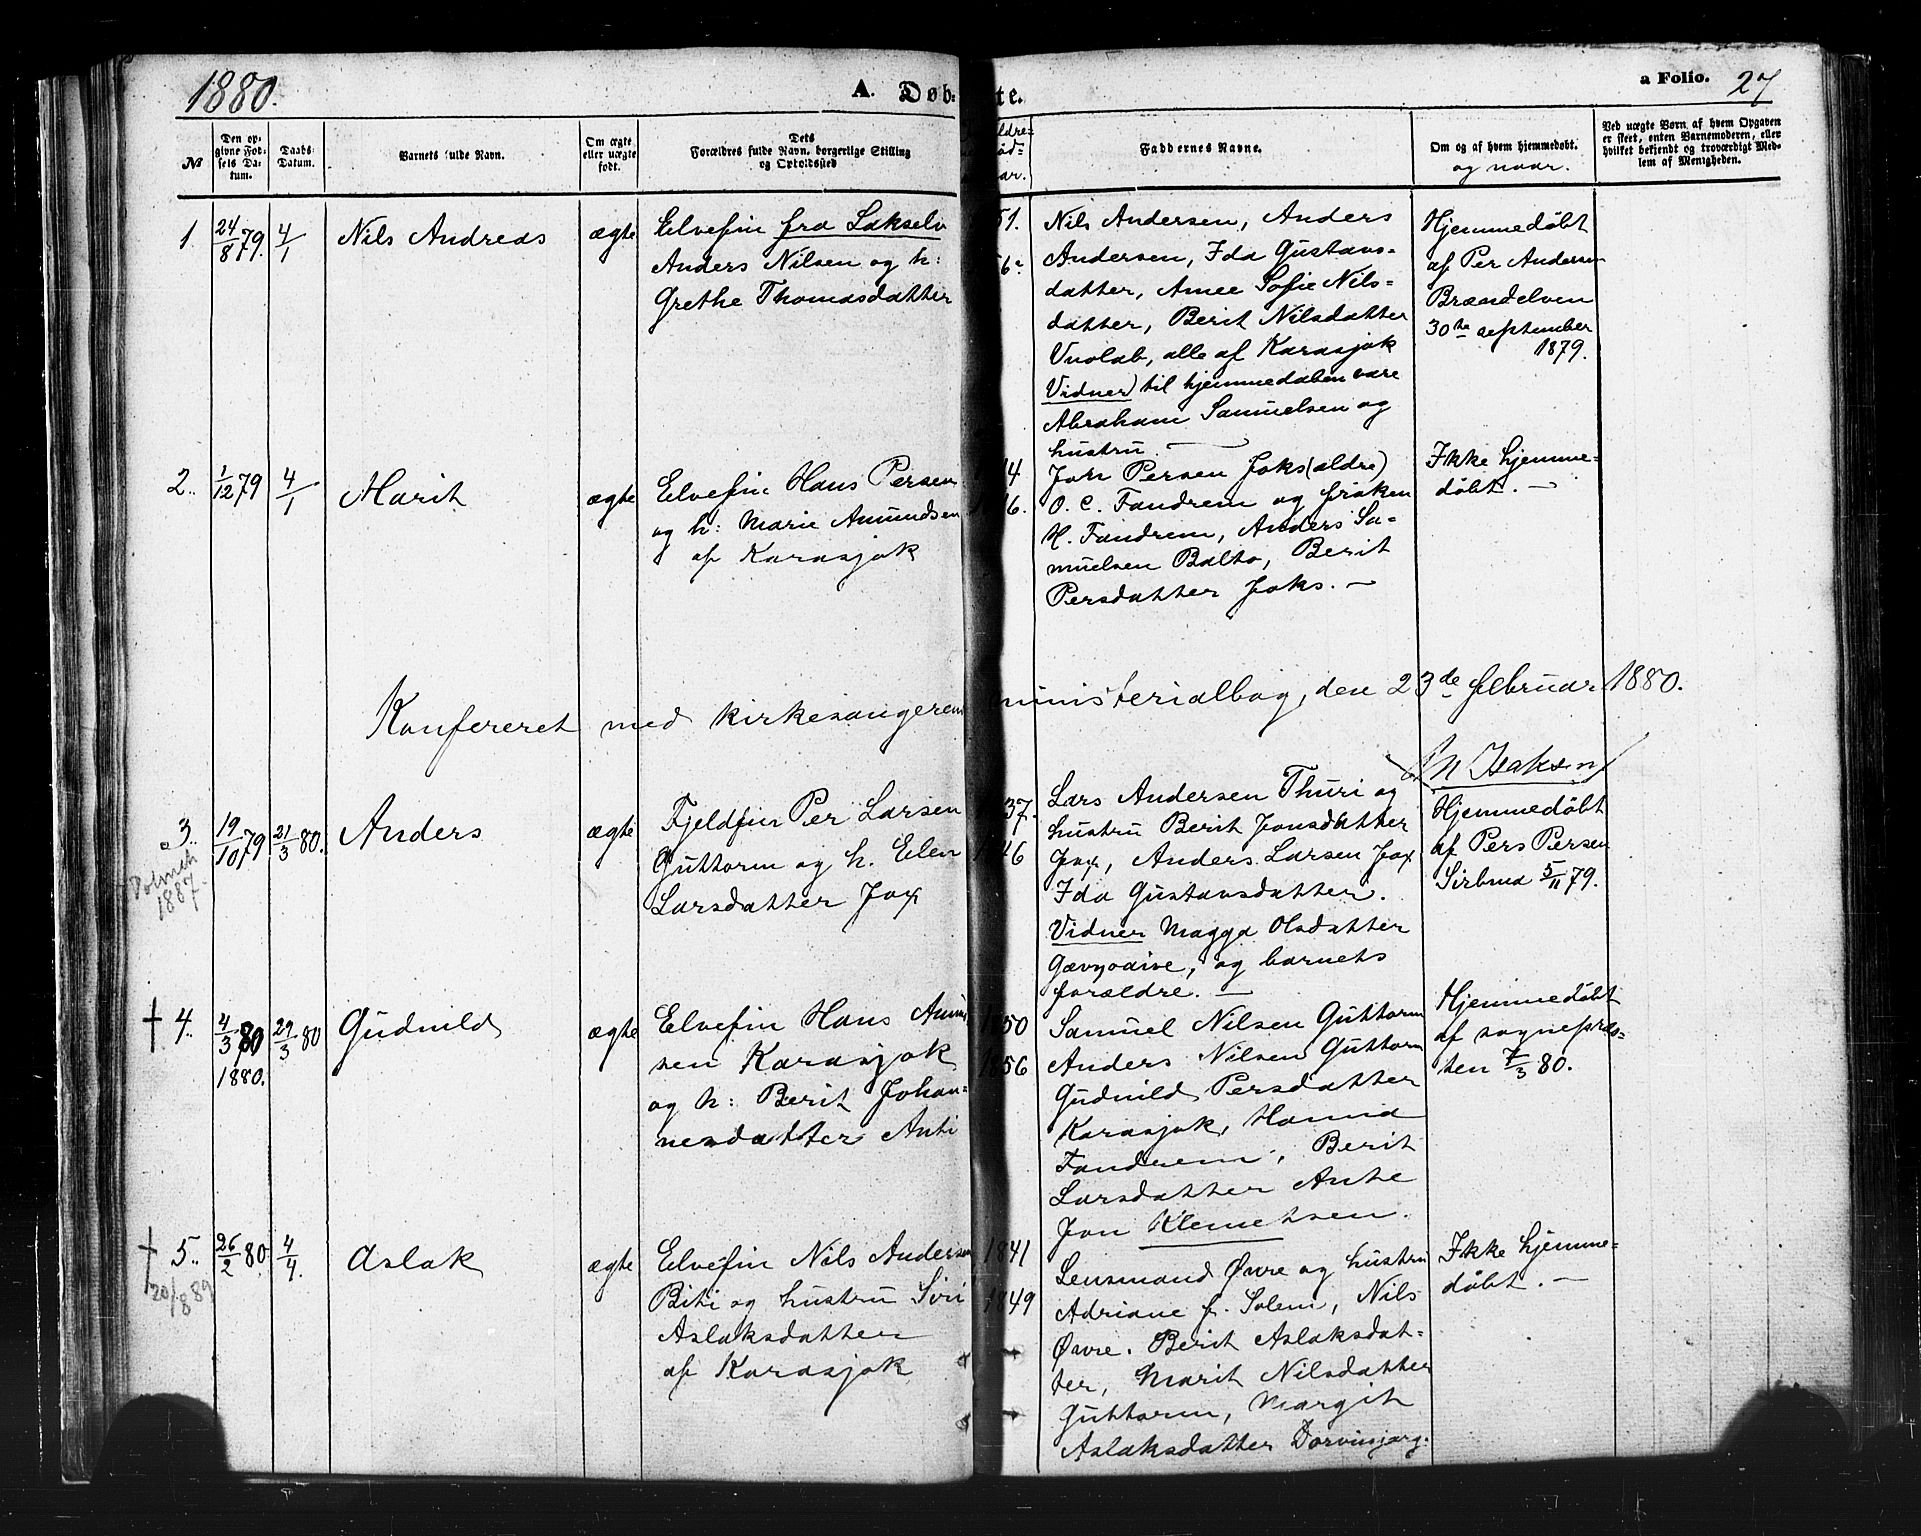 1880.
A. Døb: te.
a Folio. 27
№
Den op-
givne Fød-
sels Da-
tum.
Daabs-
Datum.
Barnets fulde Navn.
Om ægte
eller uægte
født.
Dets
Forældres fulde Navn, borgerlige Stilling
og Opholdssted
ldre-
ød-
ar.
Faddernes Navne.
Om og af hvem hjemmedøbt.
og naar.
Ved uægte Børn af hvem Opgaven
er skeet, enten Barnemoderen, eller
hvilket bekjendt og troværdigt Med-
lem af Menigheden.
1. 24/8 79. 4/1 Nils Andreas ægte
Elvefin fra Lakselv
Anders Nilsen og h:
Grethe Thomasdatter
51.
56.
Nils Andersen, Anders
Andersen, Ida Gustavs-
datter, Anne Sofie Nils-
datter, Berit Nilsdatter
Vuolab, alle af Karasjok
Vidner) til hjemmedaben vare
Abraham Samuelsen og
hustru. —
Hjemmedøbt
af Per Andersen
Brændelven
30te september
1879.
2. 1/12 79 4/1 Marit ægte
Elvefin Hans Persen
og h: Marie Amundsen
af Karasjok
14
16.
Jon Persen Joks (ældre)
O. C. Fandrem og frøken
H. Fandrem, Anders Sa-
muelsen Balto, Berit
Persdatter Joks. —
Ikke hjemme-
døbt. —
Konfereret med kirkesangerens ministerialbog, den 23de februar 1880.
Isaksen
3. 19/10 79 21/3 80. Anders ægte
1887.
Fjeldfin Per Larsen
Guttorm og h. Elen
Larsdatter Jox
37.
46
Lars Andersen Thuri og
hustru Berit Jonsdatter
Jox, Anders Larsen Jox
Ida Gustavsdatter.
Vidner Magga Olsdatter
og barnets
forældre. —
Hjemmedøbt
af Pers Persen
Sirbma 5/11 79.
† 4. 4/3 80 29/3 80 Gudnild ægte
1880.
Elvefin Hans Amund
sen Karasjok
og h: Berit Johan-
nesdatter Anti
1850
1856
Samuel Nilsen Guttorm
Anders Nilsen Guttorm
Gudnild Persdatter
Karasjok, Hanna
Fandrem, Berit
Larsdatter Ante
Jon Klemetsen.
Hjemmedøbt
af sognepræs-
ten 7/3 80.
† 5. 26/2 80. 4/4. Aslak ægte
20/8 89
Elvefin Nils Andersen
Biti og hustru Siri
Aslaksdatter
af Karasjok
1841
1849
Lensmand Øvre og hustru
Adriane f. Solem, Nils
Øvre. Berit Aslaksdat-
ter, Marit Nilsdatter
Guttorm, Margit
Aslaksdatter Dorvinjarg.
Ikke hjemme-
døbt. —